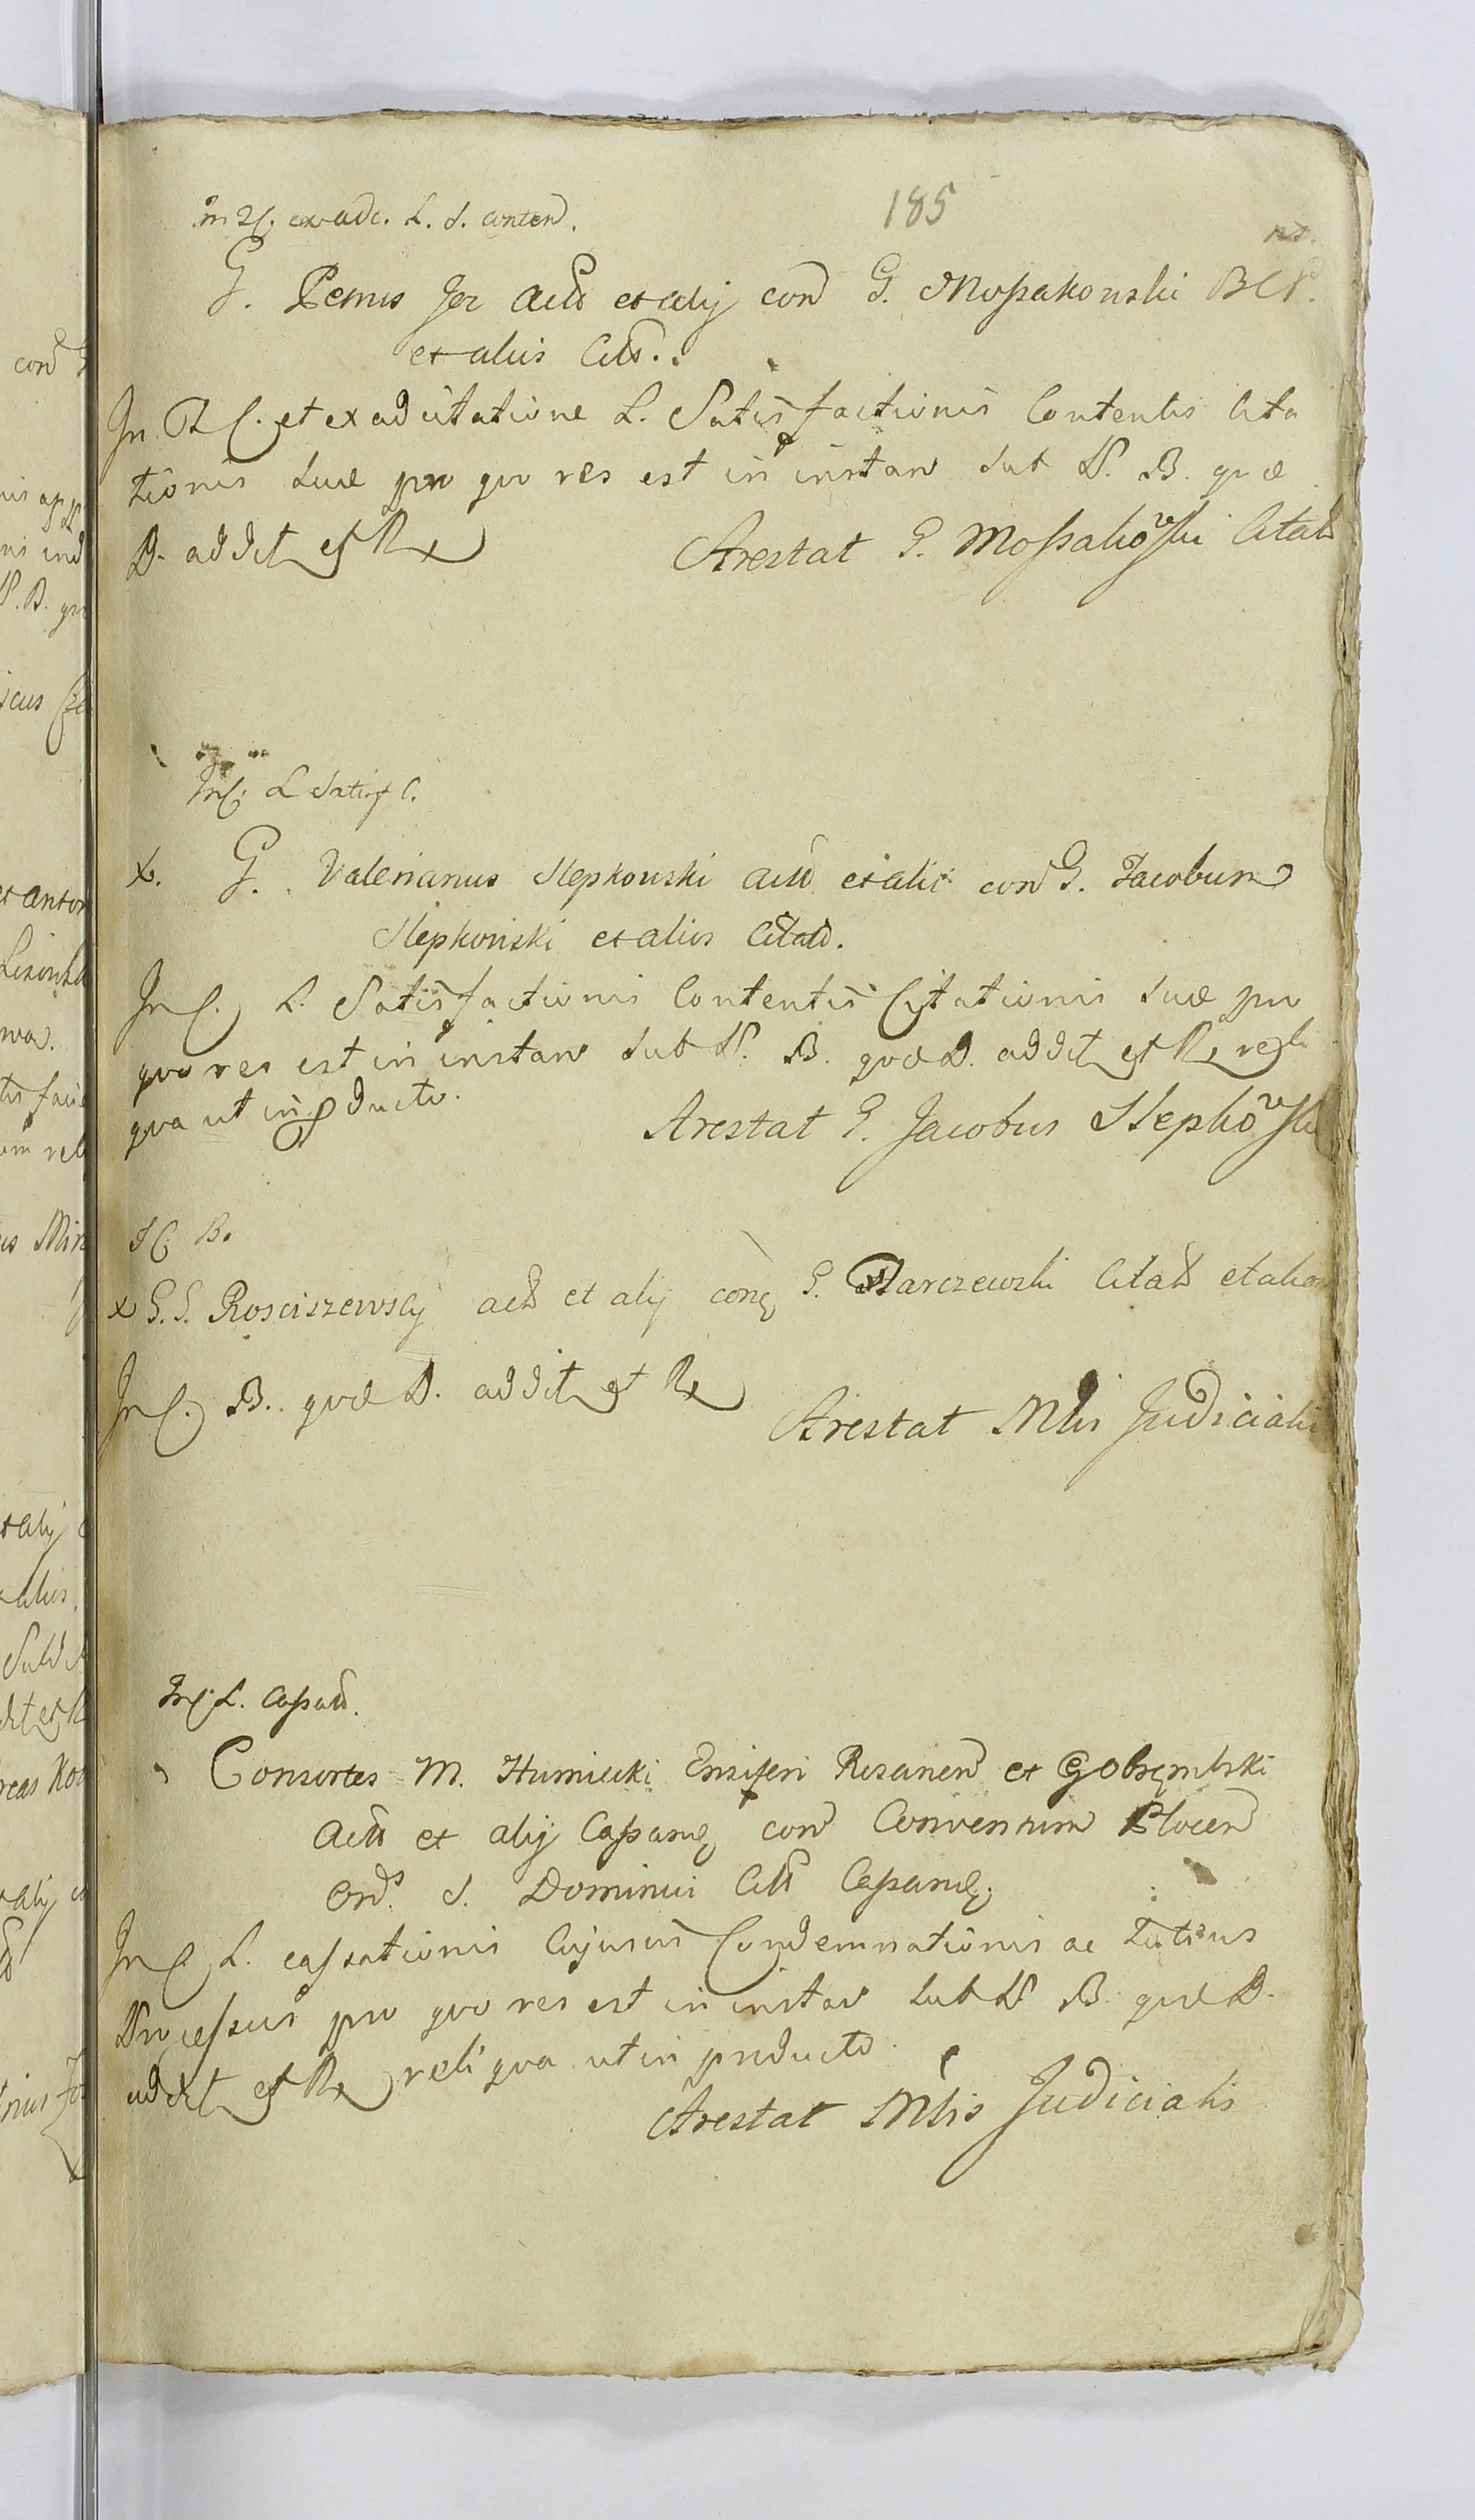 185
in 2C. ex adc. L. S. conten.
G. Petrus Jer Act et alij con G. Mossakowski BCP.
et aliis Citt.
In 2 C. et ex adcitatione L. Satisfactionis Contentis Cita
tionis suæ pro quo res est in instan sub N. B. quæ
D. addit est Rx Arestat G. Mossakowski Citat
In C. L Satisf C.
x. G. Valerianus Slepkowski act et alii con G. Jacobum
Slepkowski et alios Citat.
In C. L. Satisfactionis Contentis Citationis suæ pro
quo res est in instan sub N. B. quæ D. addit est Rx reli
qua ut in producto. Arestat G. Jacobus Slepkowski
I C. B.
x G.G. Rosciszewscy act et alij con G. Warczewski Citat et alios
In C. B. quæ D. addit est Rx
Arestat Mlis Judicialis
In C. L. Cassatt.
Consortes M. Humiecki Ensiferi Rosanen et Gobrzembski
Act et alij Cassan con Conventum Plocen
Ord. S. Dominici Citt Cassan.
In C. L. cassationis Cujusvis Condemnationis ac totius
Processus pro quo res est in instan sub N B. quæ D.
addit est Rx reliqua ut in producto.
Arestat Mlis Judicialis